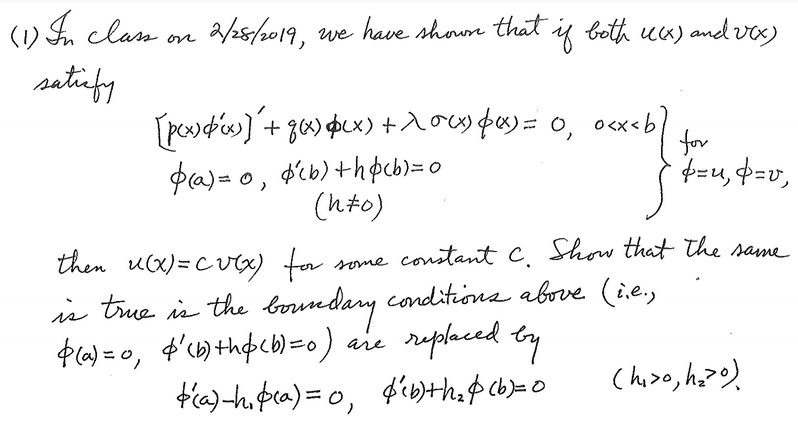 (1) In class on 2/28/2019, we have shown that if both u(x) and v(x)
satisfy
[p(x)φ'(x)]' + q(x)φ(x) + λσ(x)φ(x) = 0, 0<x<b
φ(a) = 0, φ'(b) + hφ(b) = 0
(h≠0)
for
φ=u, φ=v,
then u(x) = c v(x) for some constant c. Show that the same
is true is the boundary conditions above (i.e.,
φ(a)=0, φ'(b)+hφ(b)=0) are replaced by
φ'(a)-h₁φ(a) = 0, φ'(b)+h₂φ(b)=0 (h₁>0, h₂>0).